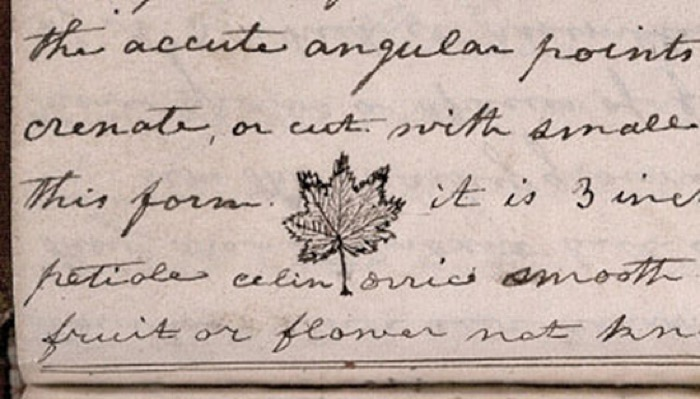 the accute angular points
crenate, or cut with small
this form. it is 3 inch
petiole celindrice smooth
fruit or flower not kn